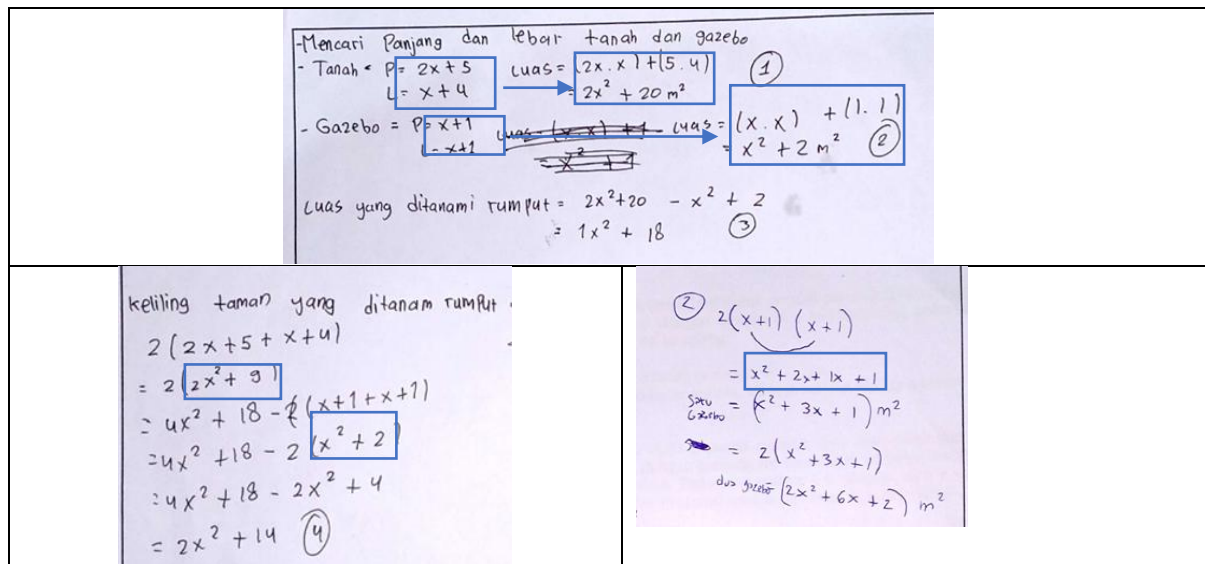 -Mencari Panjang dan lebar tanah dan gazebo
- Tanah = P= 2x+5 Luas= (2x.x)+(5.4) ①
L= x+4 = 2x² + 20 m²
- Gazebo = P= x+1 Luas = (x.x) + (1.1) ②
L= x+1 = x² + 2 m²
Luas yang ditanami rumput = 2x²+20 - x² + 2
= 1x² + 18 ③
keliling taman yang ditanam rumput
2(2x+5+x+4)
= 2(2x²+9)
= 4x² + 18 - 2(x+1+x+1)
=4x² +18 - 2(x²+2)
=4x²+18 - 2x² + 4
= 2x² + 14 ④
② 2(x+1) (x+1)
= x² + 2x + 1x + 1
Satu Gazebo = (x² + 3x + 1) m²
= 2(x²+3x+1)
dua gazebo = (2x² + 6x + 2) m²